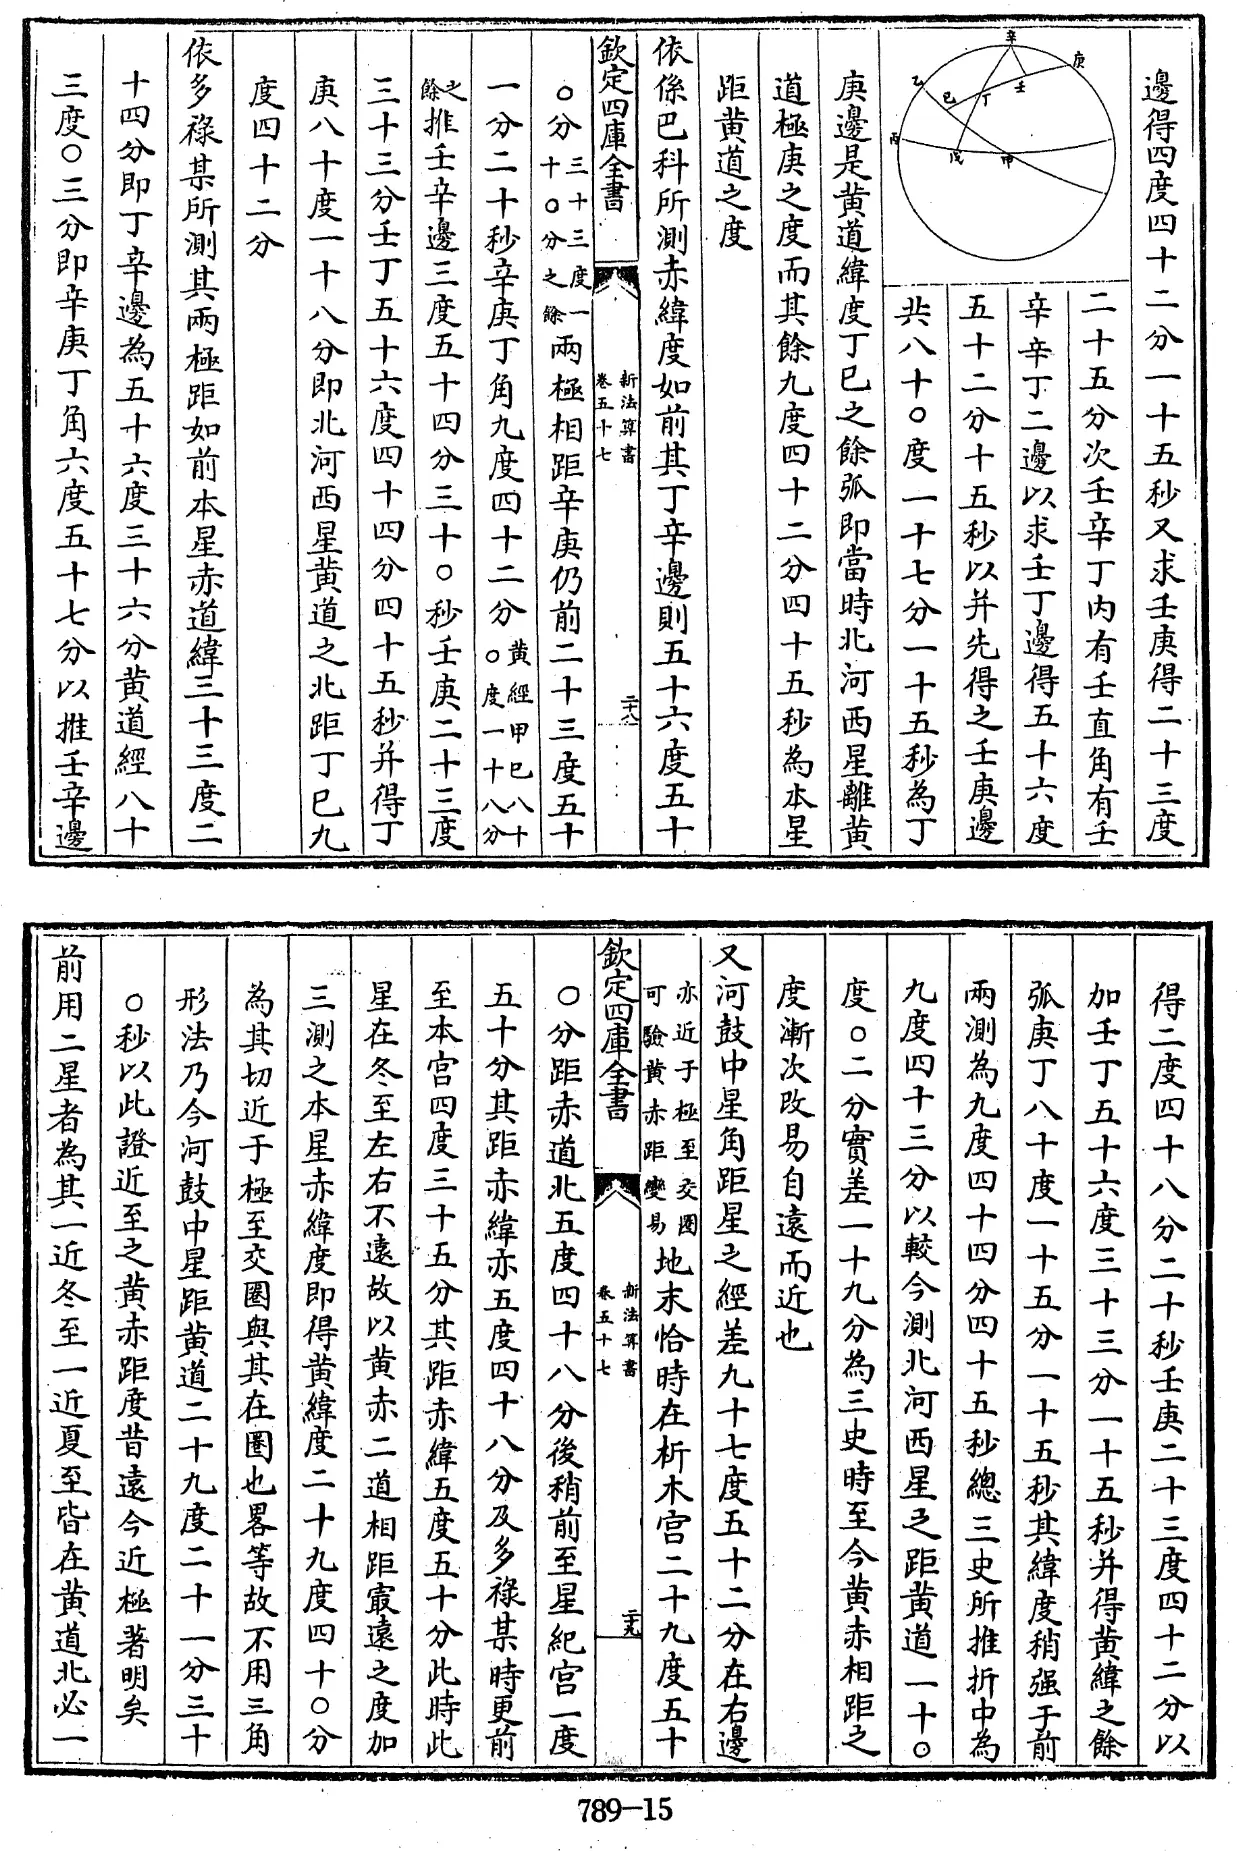 邊得四度四十二分一十五秒又求壬庚得二十三度
辛
庚
壬
丁
乙
巳
丙
戊
甲
二十五分次壬辛丁内有壬直角有壬
辛辛丁二邊以求壬丁邊得五十六度
五十二分十五秒以并先得之壬庚邊
共八十〇度一十七分一十五秒為丁
庚邊是黄道緯度丁巳之餘弧即當時北河西星離黄
道極庚之度而其餘九度四十二分四十五秒為本星
距黄道之度
依係巴科所測赤緯度如前其丁辛邊則五十六度五十
欽定四庫全書
新法算書
卷五十七
二十八
〇分三十三度一十〇分之餘兩極相距辛庚仍前二十三度五十
一分二十秒辛庚丁角九度四十二分黄經甲巳八十〇度一十八分
之餘推壬辛邊三度五十四分三十〇秒壬庚二十三度
三十三分壬丁五十六度四十四分四十五秒并得丁
庚八十度一十八分即北河西星黄道之北距丁巳九
度四十二分
依多禄某所測其兩極距如前本星赤道緯三十三度二
十四分即丁辛邊為五十六度三十六分黄道經八十
三度〇三分即辛庚丁角六度五十七分以推壬辛邊
得二度四十八分二十秒壬庚二十三度四十二分以
加壬丁五十六度三十三分一十五秒并得黄緯之餘
弧庚丁八十度一十五分一十五秒其緯度稍强于前
兩測為九度四十四分四十五秒總三史所推折中為
九度四十三分以較今測北河西星之距黄道一十〇
度〇二分實差一十九分為三史時至今黄赤相距之
度漸次改易自遠而近也
又河鼓中星角距星之經差九十七度五十二分在右邊
亦近于極至交圏可驗黄赤距變易地末恰時在析木宫二十九度五十
欽定四庫全書
新法算書
卷五十七
二十九
〇分距赤道北五度四十八分後稍前至星紀宫一度
五十分其距赤緯亦五度四十八分及多禄某時更前
至本宫四度三十五分其距赤緯五度五十分此時此
星在冬至左右不遠故以黄赤二道相距㝡遠之度加
三測之本星赤緯度即得黄緯度二十九度四十〇分
為其切近于極至交圏與其在圏也畧等故不用三角
形法乃今河鼓中星距黄道二十九度二十一分三十
〇秒以此證近至之黄赤距度昔遠今近極著明矣
前用二星者為其一近冬至一近夏至皆在黄道北必一
789-15